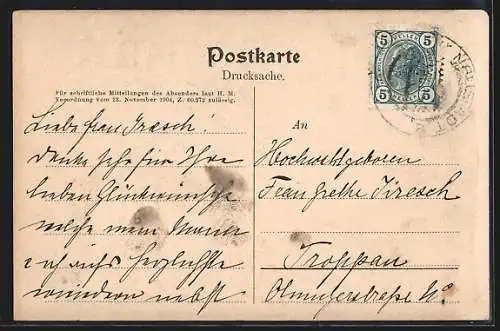 Postkarte
Drucksache.
Für schriftliche Mitteilungen des Absenders laut H. M.
Verordnung vom 23. November 1904, Z. 60.372 zulässig.
5 5
5 5
Liebe Frau Jresch!
Danke sehr für Ihre
lieben Glückwünsche
welche mein Mann
u. ich aufs herzlichste
erwidern nebst
An
Hochwohlgeboren
Frau Grethe Jresch
Troppau
Olmützerstraße